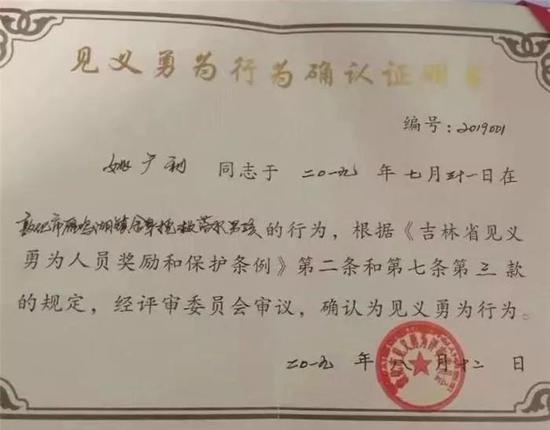 见义勇为行为确认证明书
编号：2019001
姚广利 同志于 二〇一九 年 七 月 三十一 日在
敦化市雁鸣湖镇 抢救落水男孩 的行为，根据《吉林省见义
勇为人员奖励和保护条例》第二条和第七条第三款
的规定，经评审委员会审议，确认为见义勇为行为。
二〇一九 年 八 月 十二 日